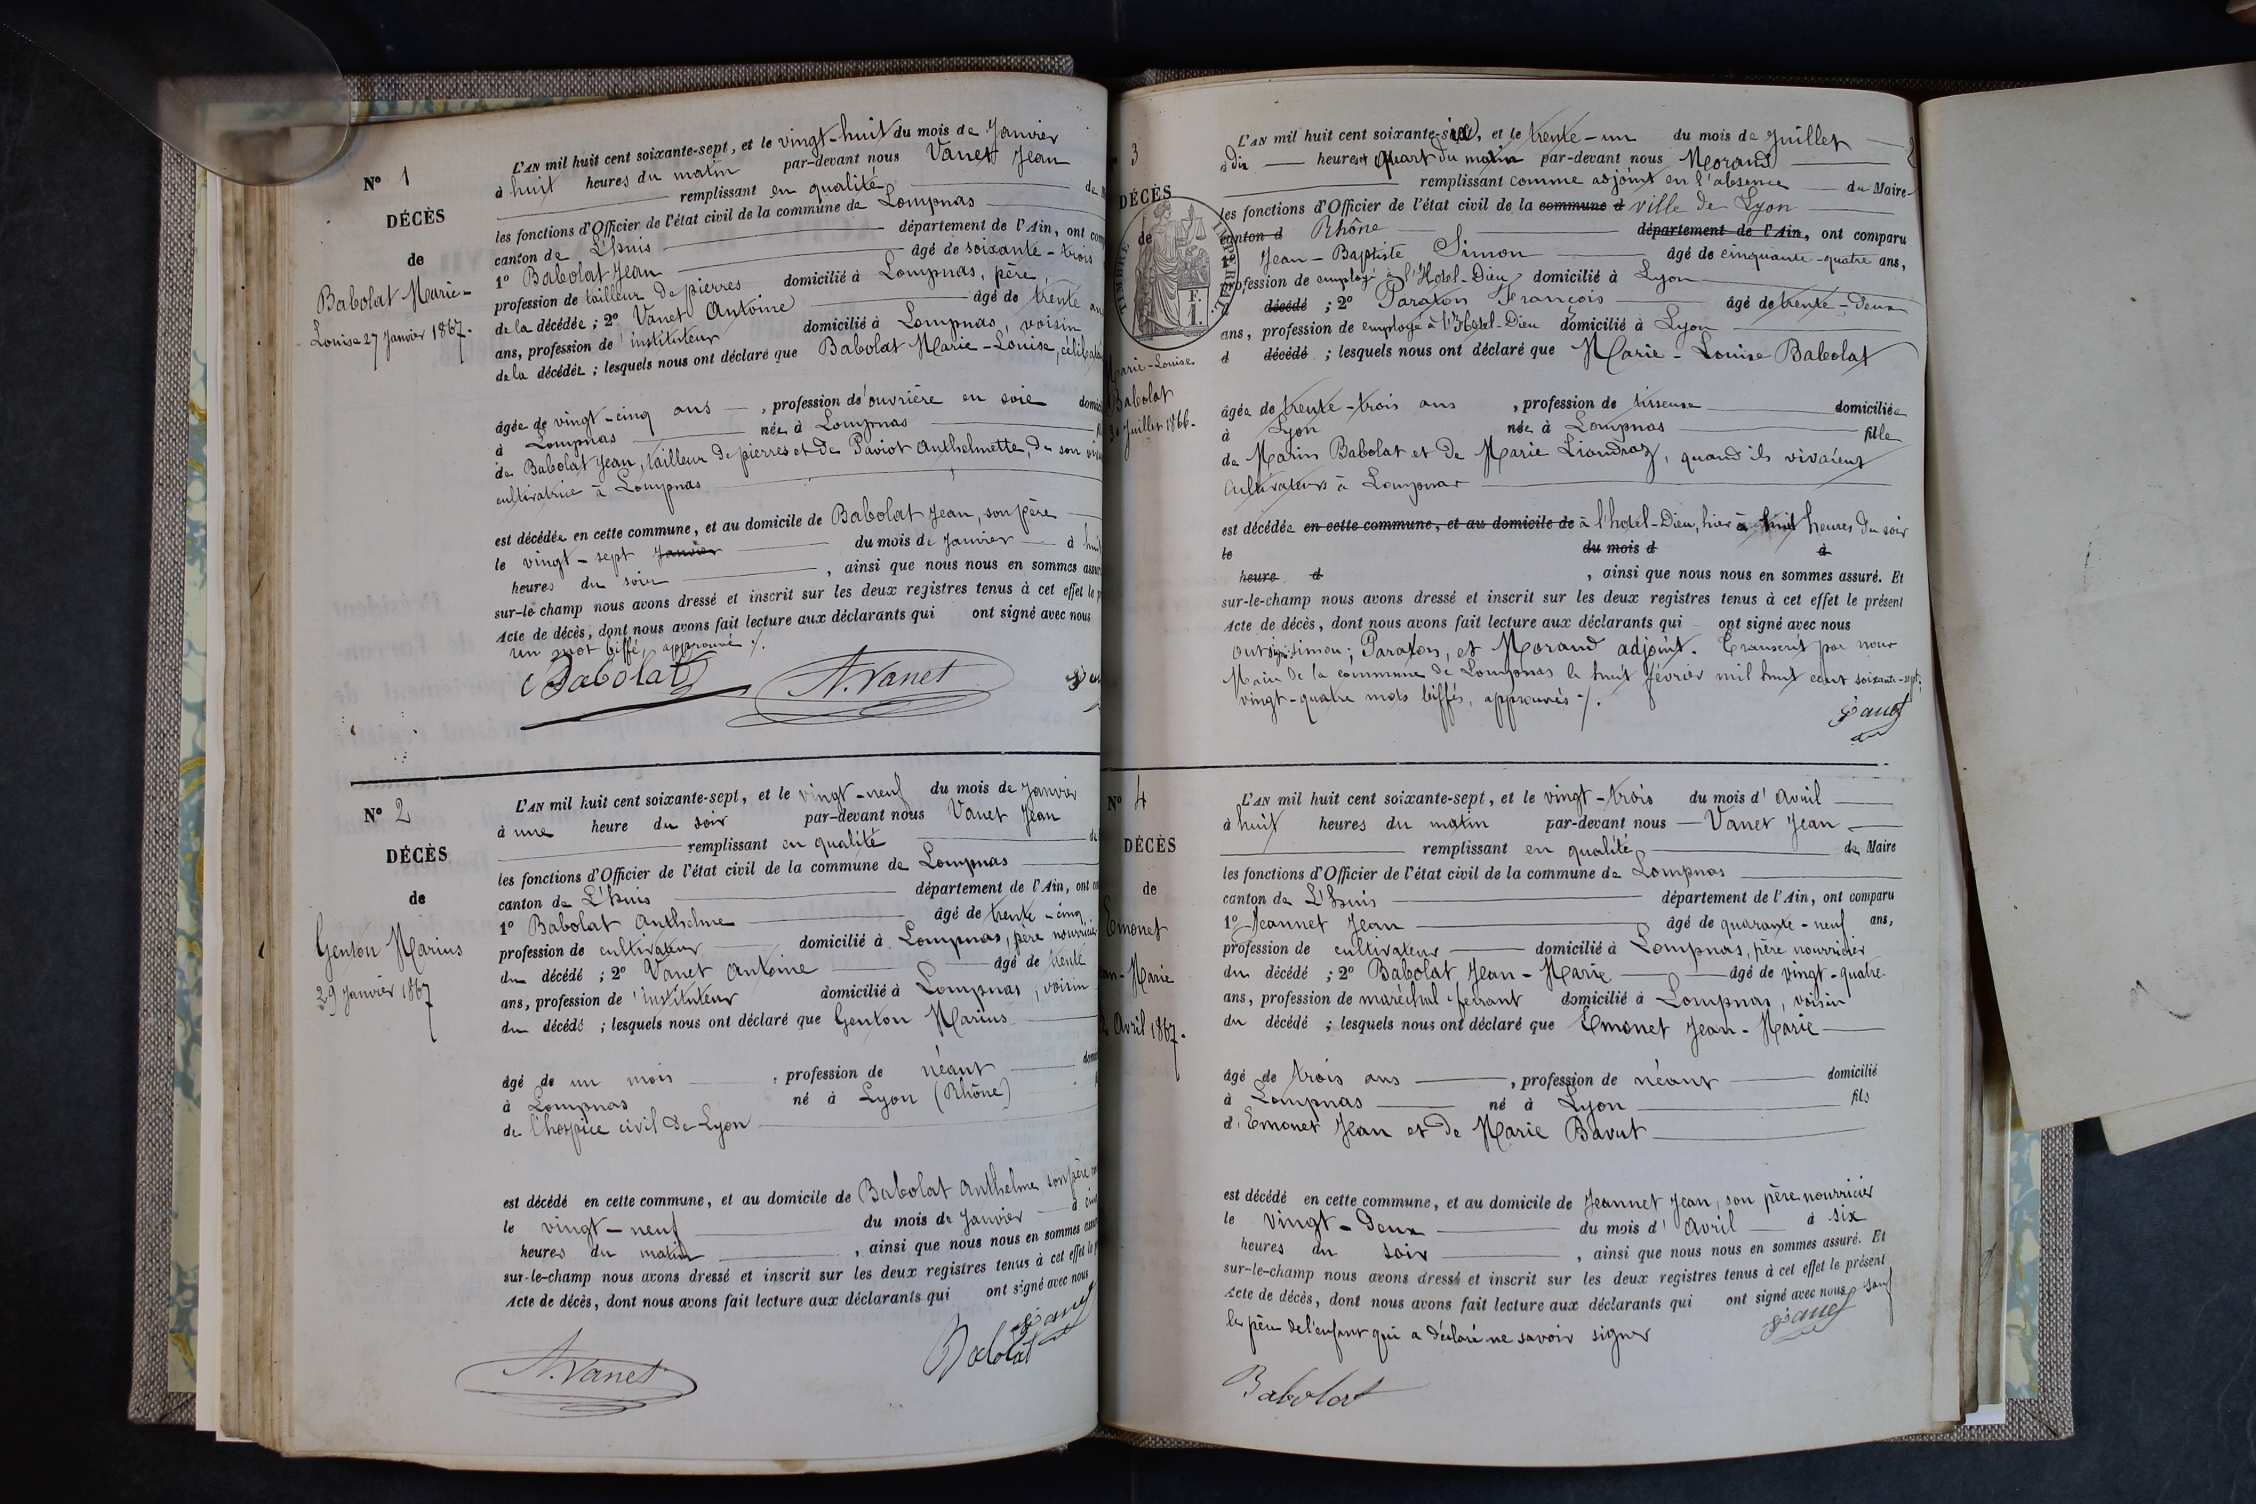 N° 1
DÉCÈS
de
Babolat Marie-
Louise 27 Janvier 1867.
L'AN mil huit cent soixante-sept, et le vingt-huit du mois de Janvier
à huit heures du matin par-devant nous Vanet Jean
remplissant en qualité de
les fonctions d'Officier de l'état civil de la commune de Lompnas
canton de L'huis département de l'Ain, ont
1° Babolat Jean âgé de soixante-trois
profession de tailleur de pierres domicilié à Lompnas, père
de la décédée ; 2° Vanet Antoine âgé de trente
ans, profession de instituteur domicilié à Lompnas, voisin
de la décédée ; lesquels nous ont déclaré que Babolat Marie-Louise,
âgée de vingt-cinq ans, profession d'ouvrière en soie
à Lompnas née à Lompnas
de Babolat Jean, tailleur de pierres et de Paviot Anthelmette, de son
cultivatrice à Lompnas
est décédée en cette commune, et au domicile de Babolat Jean, son père
le vingt-sept Janvier du mois de Janvier à
heures du soir, ainsi que nous nous en sommes
sur-le-champ nous avons dressé et inscrit sur les deux registres tenus à cet effet le
Acte de décès, dont nous avons fait lecture aux déclarants qui ont signé avec nous
un mot biffé, approuvé ./.
Babolat A. Vanet
N° 2
DÉCÈS
de
Genton Marius
29 Janvier 1867
L'AN mil huit cent soixante-sept, et le vingt-neuf du mois de Janvier
à une heure du soir par-devant nous Vanet Jean
remplissant en qualité
les fonctions d'Officier de l'état civil de la commune de Lompnas
canton de L'huis département de l'Ain, ont
1° Babolat Anthelme âgé de trente-cinq
profession de cultivateur domicilié à Lompnas, père nourricier
du décédé ; 2° Vanet Antoine âgé de trente
ans, profession de instituteur domicilié à Lompnas, voisin
du décédé ; lesquels nous ont déclaré que Genton Marius
âgé de un mois, profession de néant
à Lompnas né à Lyon (Rhône)
de l'hospice civil de Lyon
est décédé en cette commune, et au domicile de Babolat Anthelme, son père
le vingt-neuf du mois de Janvier à
heures du matin, ainsi que nous nous en sommes
sur-le-champ nous avons dressé et inscrit sur les deux registres tenus à cet effet le
Acte de décès, dont nous avons fait lecture aux déclarants qui ont signé avec nous
A. Vanet Babolat Vanet
3
DÉCÈS
de
Marie-Louise
Babolat
30 Juillet 1866.
TIMBRE IMPÉRIAL
L'AN mil huit cent soixante-six, et le trente-un du mois de Juillet
à dix heures quart du matin par-devant nous Morand
remplissant comme adjoint en l'absence du Maire
les fonctions d'Officier de l'état civil de la commune d ville de Lyon
canton d Rhône département de l'Ain, ont comparu
1° Jean-Baptiste Simon âgé de cinquante-quatre ans,
profession de employé à l'Hotel-Dieu domicilié à Lyon
décédé ; 2° Paraton François âgé de trente-deux
ans, profession de employé à l'Hotel-Dieu domicilié à Lyon
d décédé ; lesquels nous ont déclaré que Marie-Louise Babolat
âgée de trente-trois ans, profession de tisseuse domiciliée
à Lyon née à Lompnas fille
de Marin Babolat et de Marie Liandraz, quand ils vivaient
cultivateurs à Lompnas
est décédée en cette commune, et au domicile de à l'hotel-Dieu, hier à huit heures du soir
le du mois d à
heure d, ainsi que nous nous en sommes assuré. Et
sur-le-champ nous avons dressé et inscrit sur les deux registres tenus à cet effet le présent
Acte de décès, dont nous avons fait lecture aux déclarants qui ont signé avec nous
ont signé Simon ; Paraton, et Morand adjoint. Transcrit par nous
Maire de la commune de Lompnas le huit février mil huit cent soixante-sept ;
vingt-quatre mots biffés, approuvés ./.
Vanet
N° 4
DÉCÈS
de
Emonet
Jean-Marie
Avril 1867.
L'AN mil huit cent soixante-sept, et le vingt-trois du mois d'Avril
à huit heures du matin par-devant nous Vanet Jean
remplissant en qualité de Maire
les fonctions d'Officier de l'état civil de la commune de Lompnas
canton de L'huis département de l'Ain, ont comparu
1° Jeannet Jean âgé de quarante-neuf ans,
profession de cultivateur domicilié à Lompnas, père nourricier
du décédé ; 2° Babolat Jean-Marie âgé de vingt-quatre
ans, profession de maréchal-ferrant domicilié à Lompnas, voisin
du décédé ; lesquels nous ont déclaré que Emonet Jean-Marie
âgé de trois ans, profession de néant domicilié
à Lompnas né à Lyon fils
d'Emonet Jean et de Marie Bavut
est décédé en cette commune, et au domicile de Jeannet Jean, son père nourricier
le vingt-deux du mois d'Avril à six
heures du soir, ainsi que nous nous en sommes assuré. Et
sur-le-champ nous avons dressé et inscrit sur les deux registres tenus à cet effet le présent
Acte de décès, dont nous avons fait lecture aux déclarants qui ont signé avec nous sauf
le père de l'enfant qui a déclaré ne savoir signer
Vanet
Babolat